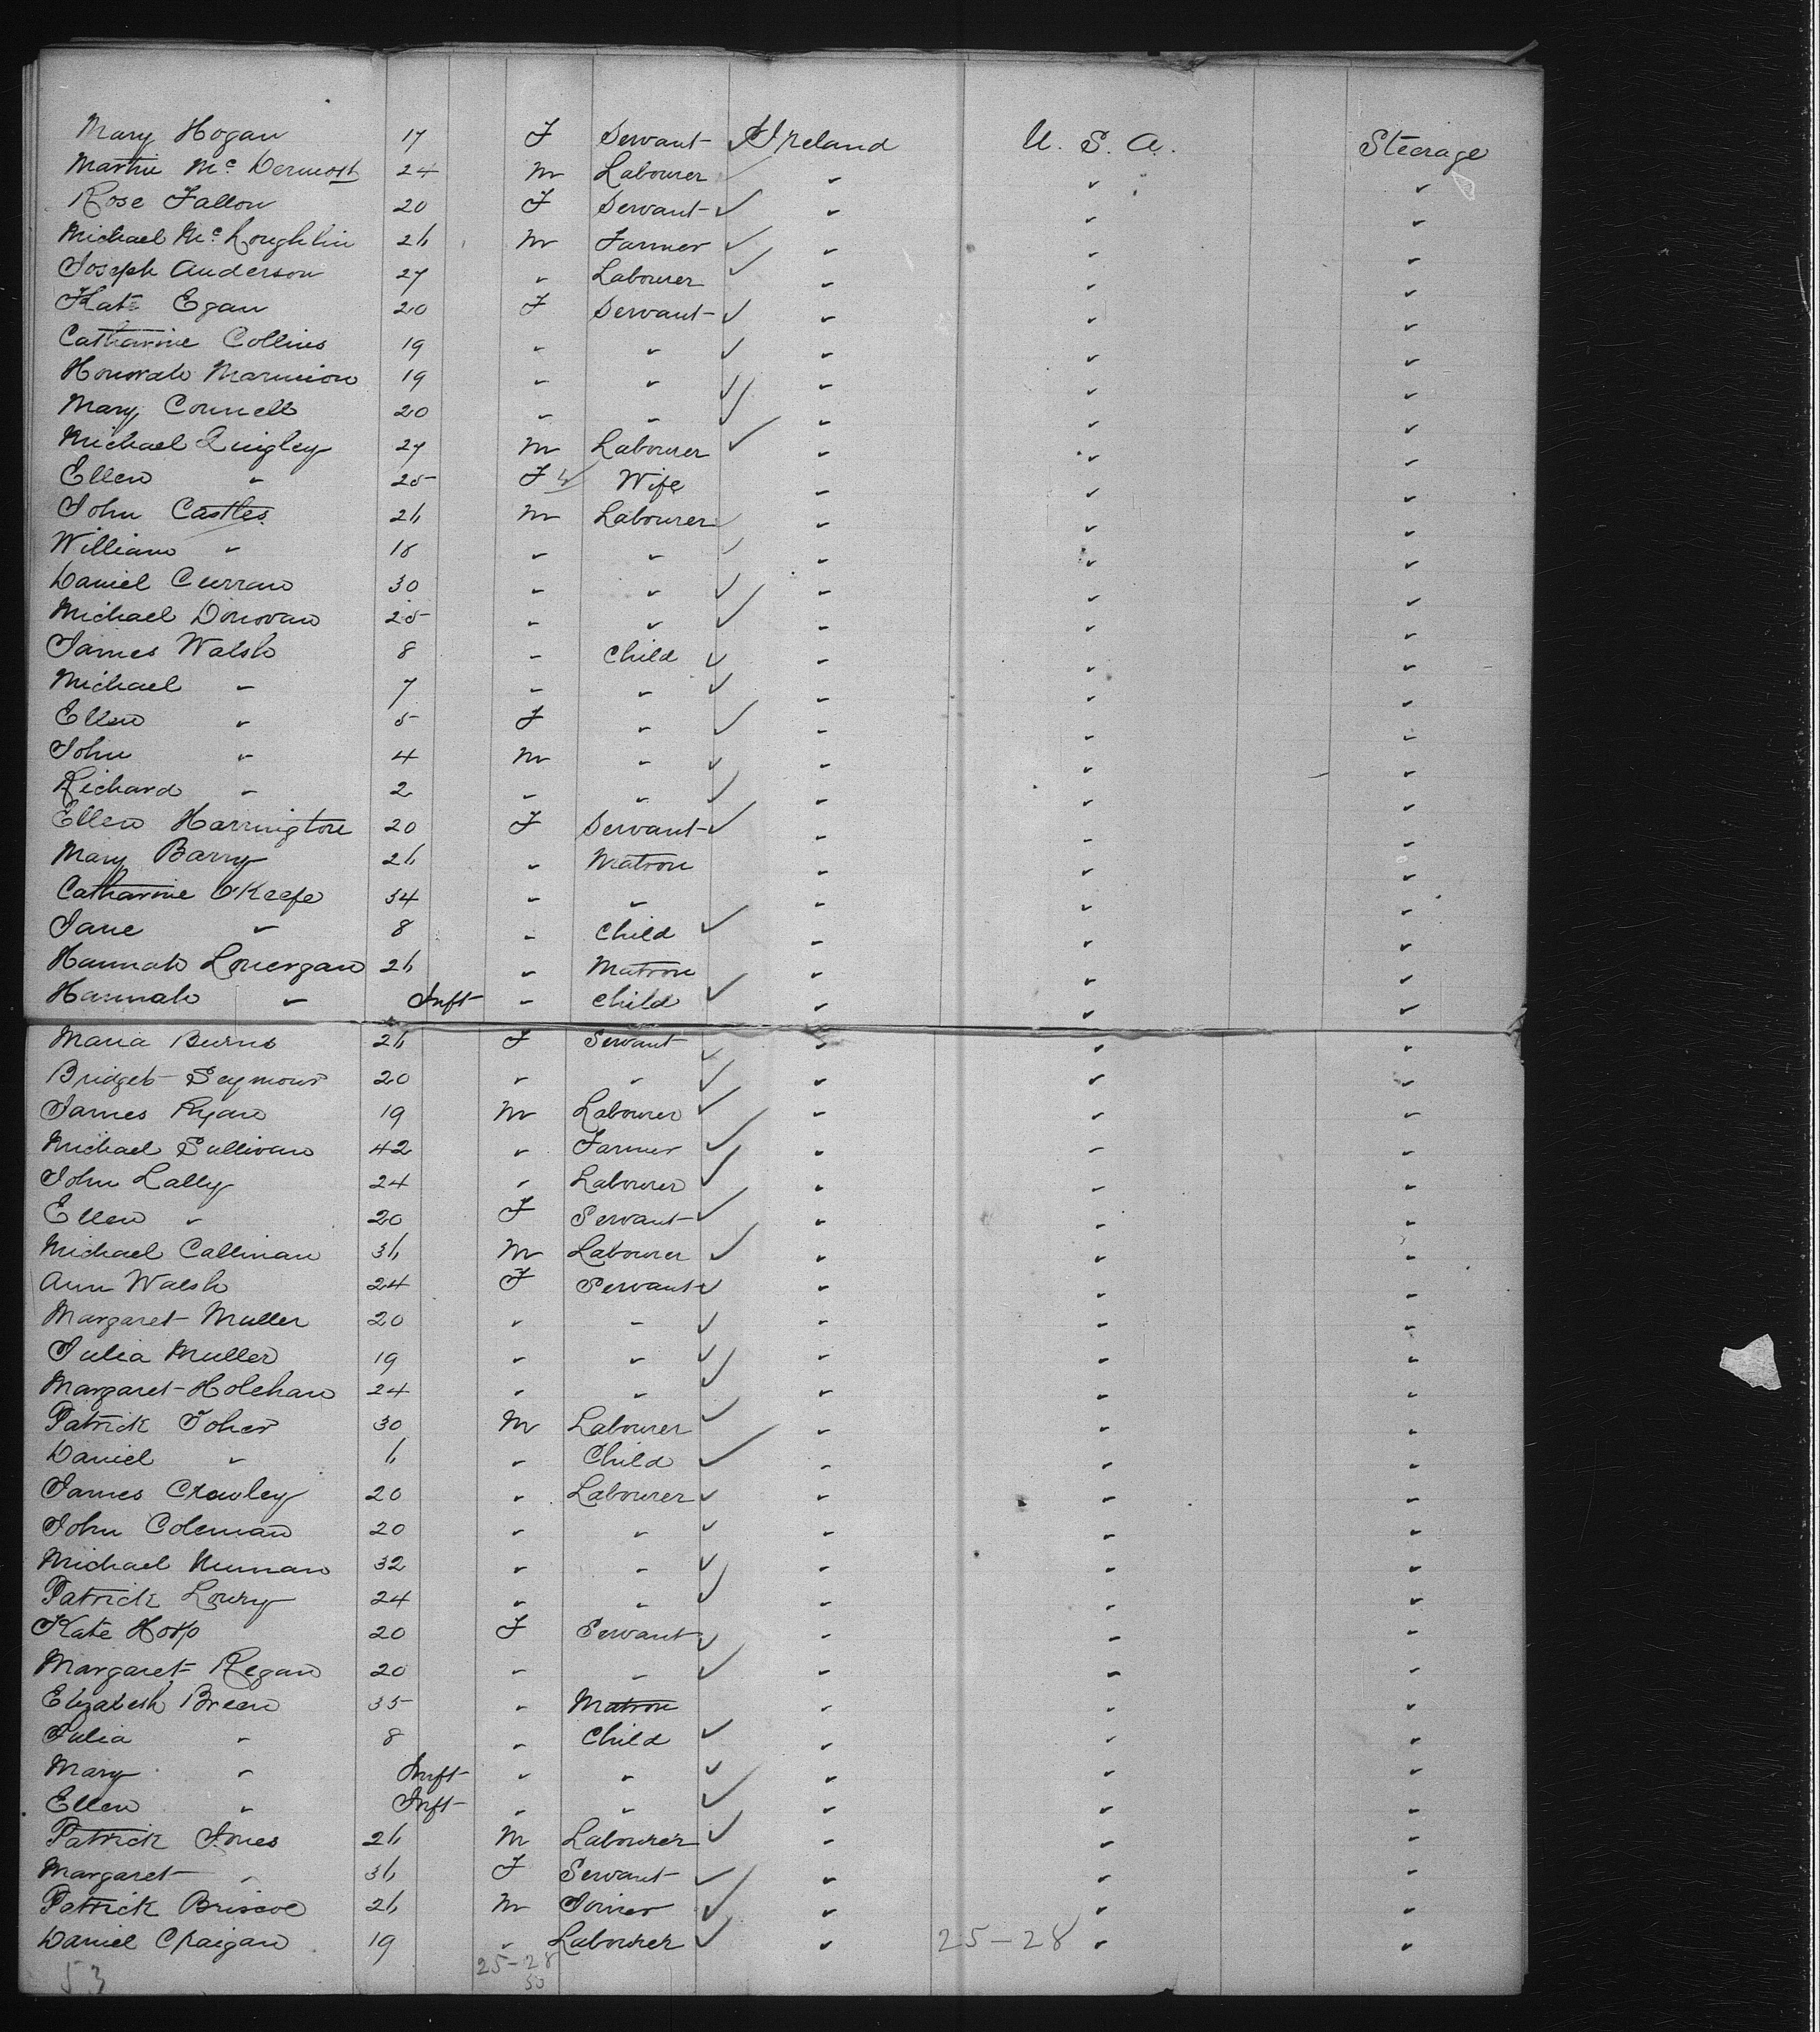 Mary Hogan 17 F Servant Ireland U. S. A. Steerage
Martin Mc Dermott 24 M Labourer " " "
Rose Fallon 20 F Servant " " "
Michael Mc Loughlin 26 M Farmer " " "
Joseph Anderson 27 " Labourer " " "
Kate Egan 20 F Servant " " "
Catharine Collins 19 " " " " "
Honorah Marmion 19 " " " " "
Mary Connell 20 " " " " "
Michael Quigley 27 M Labourer " " "
Ellen " 25 F Wife " " "
John Castles 26 M Labourer " " "
William " 18 " " " " "
Daniel Curran 30 " " " " "
Michael Donovan 25 " " " " "
James Walsh 8 " Child " " "
Michael " 7 " " " " "
Ellen " 5 F " " " "
John " 4 M " " " "
Richard " 2 " " " " "
Ellen Harrington 20 F Servant " " "
Mary Barry 26 " Matron " " "
Catharine O'Keefe 34 " " " " "
Jane " 8 " Child " " "
Hannah Lonergan 26 " Matron " " "
Hannah " Inft " Child " " "
Maria Burns 26 F Servant " " "
Bridget Seymour 20 " " " " "
James Ryan 19 M Labourer " " "
Michael Sullivan 42 " Farmer " " "
John Lally 24 " Labourer " " "
Ellen " 20 F Servant " " "
Michael Callinan 36 M Labourer " " "
Ann Walsh 24 F Servant " " "
Margaret Muller 20 " " " " "
Julia Muller 19 " " " " "
Margaret Holehan 24 " " " " "
Patrick Toher 30 M Labourer " " "
Daniel " 6 " Child " " "
James Crowley 20 " Labourer " " "
John Coleman 20 " " " " "
Michael Nunan 32 " " " " "
Patrick Lowry 24 " " " " "
Kate 20 F Servant " " "
Margaret Regan 20 " " " " "
Elizabeth Breen 35 " Matron " " "
Julia " 8 " Child " " "
Mary " Inft " " " " "
Ellen " Inft " " " " "
Patrick Jones 26 M Labourer " " "
Margaret " 36 F Servant " " "
Patrick Briscoe 26 M Joiner " " "
Daniel Craigan 19 " Labourer " 25-28 " "
53 25-28
50